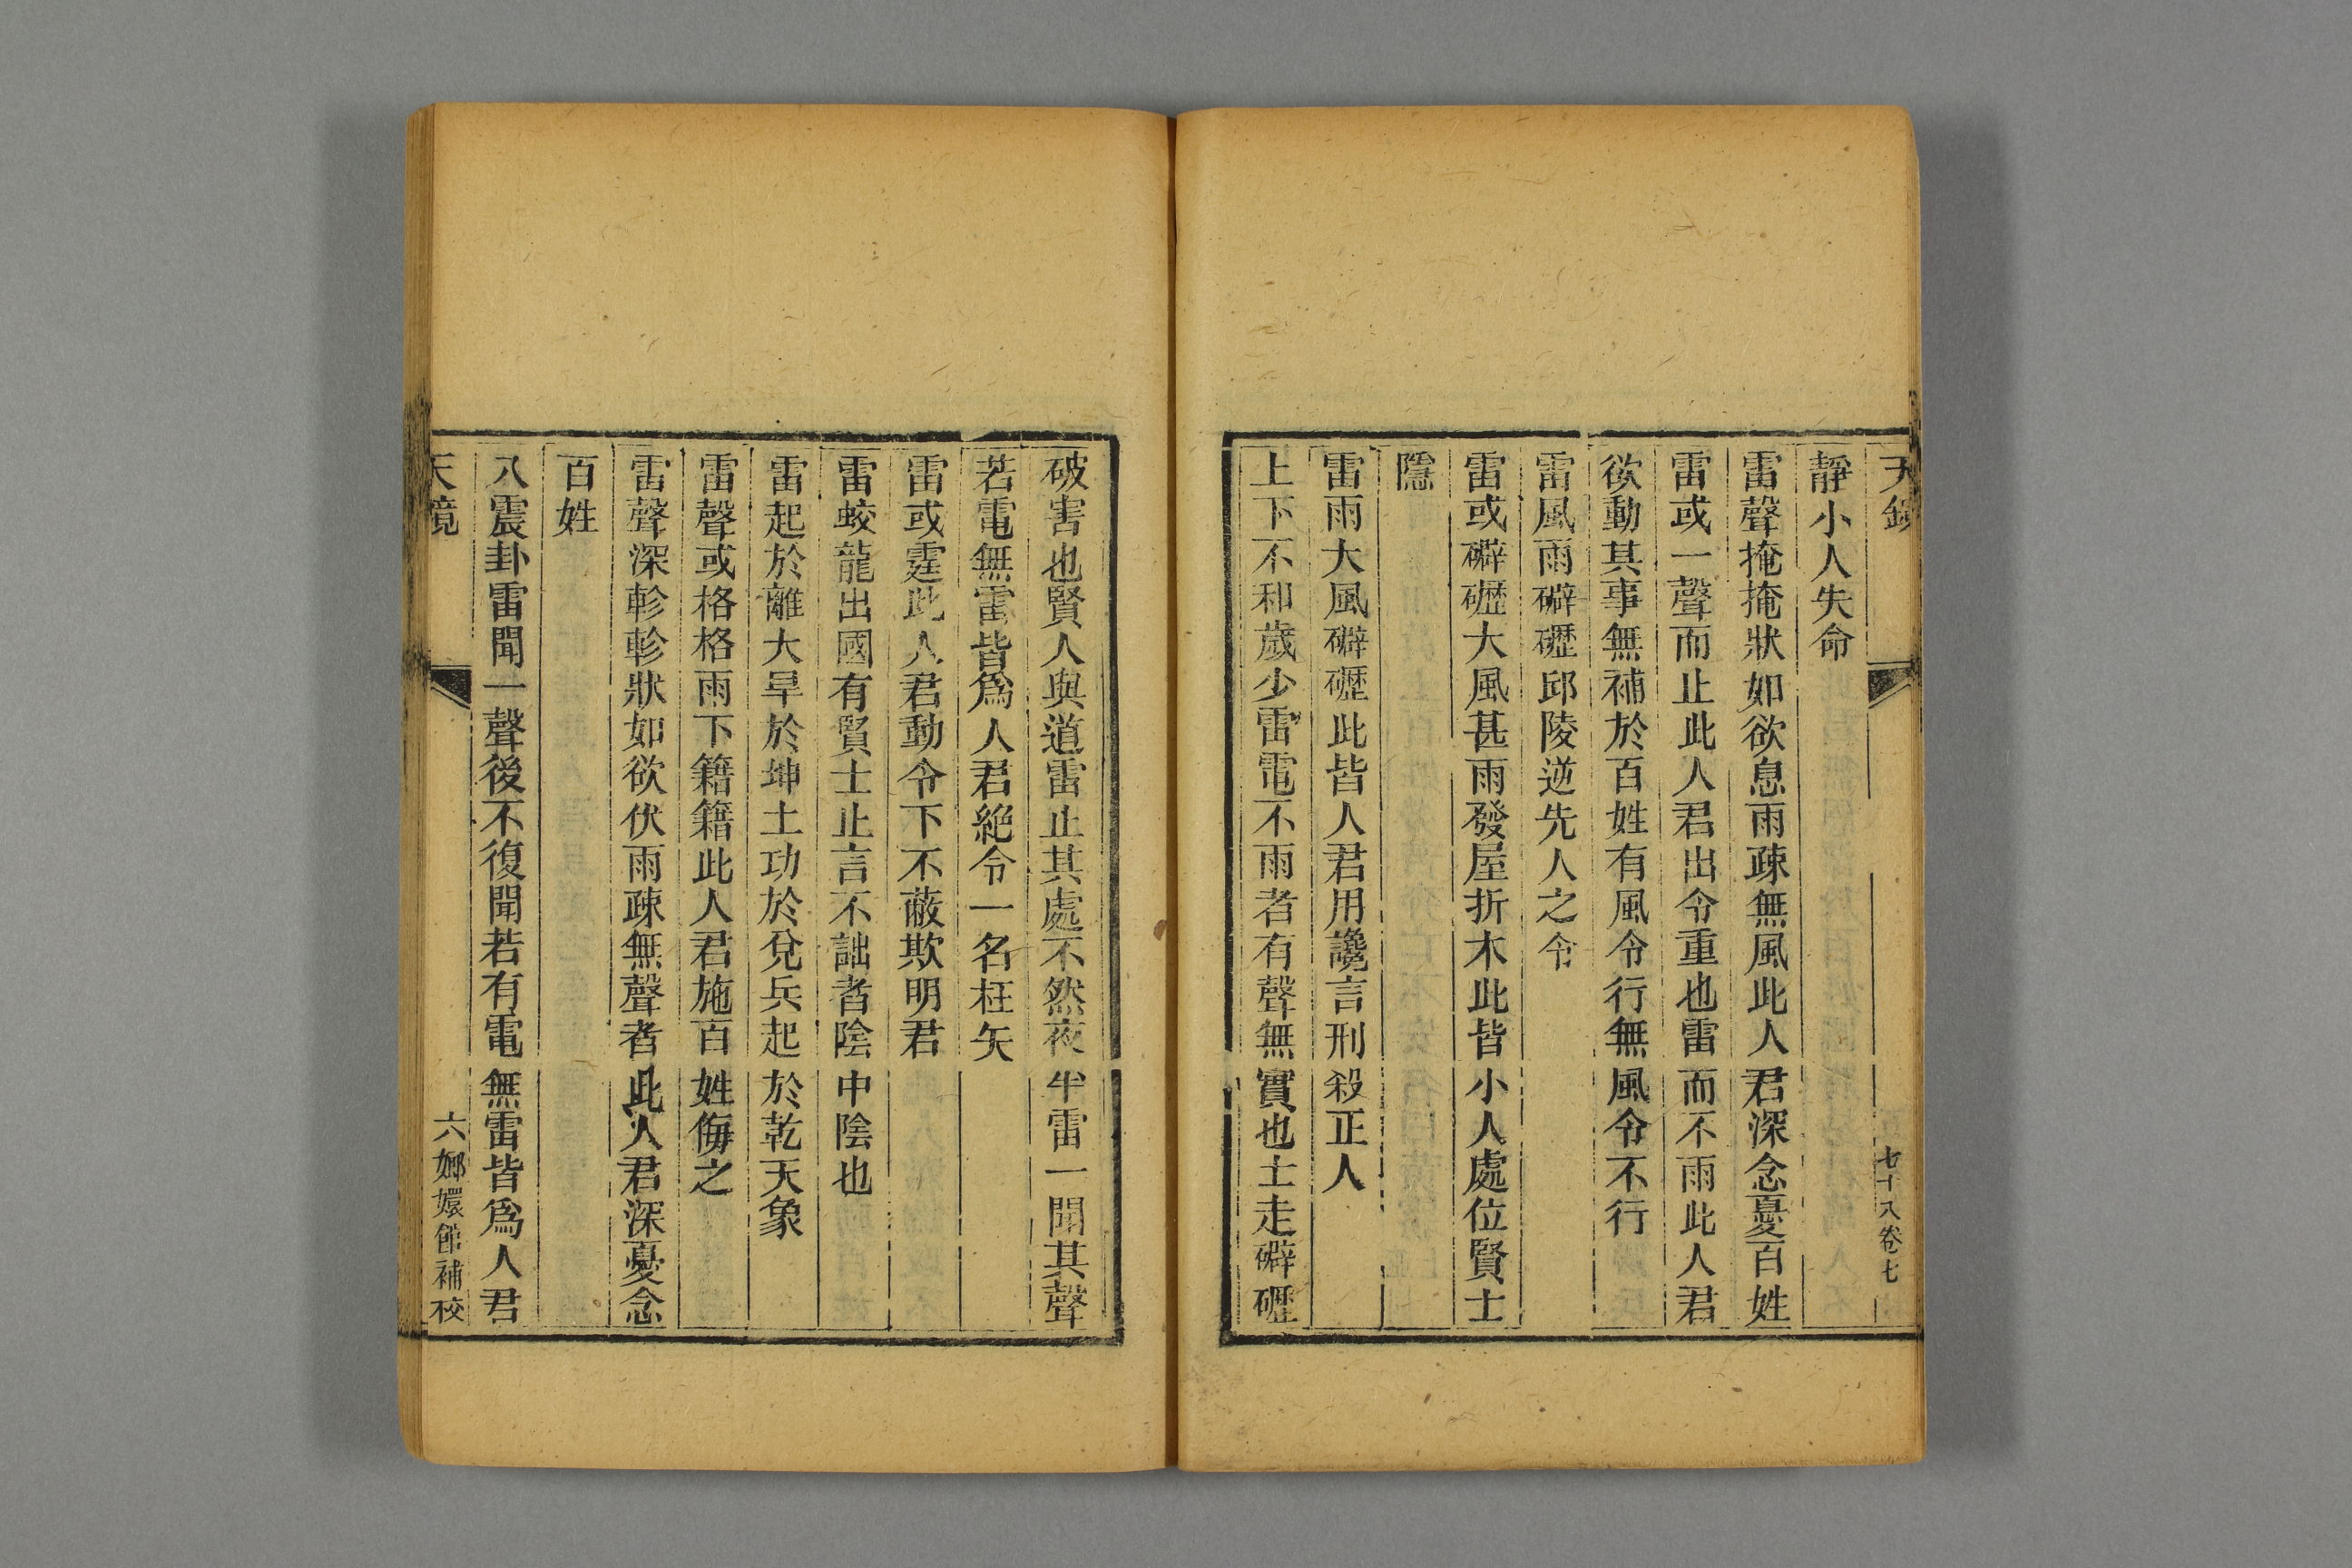 天鏡
七十八卷七
靜小人失命
雷聲掩掩狀如欲息雨疎無風此人君深念憂百姓
雷或一聲而止此人君出令重也雷而不雨此人君
欲動其事無補於百姓有風令行無風令不行
雷風雨礔礰邱陵逆先人之令
雷或礔礰大風甚雨發屋折木此皆小人處位賢士
隱
雷雨大風礔礰此皆人君用讒言刑殺正人
上下不和歲少雷電不雨者有聲無實也土走礔礰
破害也賢人與道雷止其處不然夜半雷一聞其聲
若電無雷皆爲人君絕令一名枉矢
雷或霆此人君動令下不蔽欺明君
雷蛟龍出國有賢士止言不詘者陰中陰也
雷起於離大旱於坤土功於兌兵起於乾天象
雷聲或格格雨下籍籍此人君施百姓侮之
雷聲深軫軫狀如欲伏雨疎無聲者此人君深憂念
百姓
八震卦雷聞一聲後不復聞若有電無雷皆爲人君
天鏡
六嫏嬛館補校